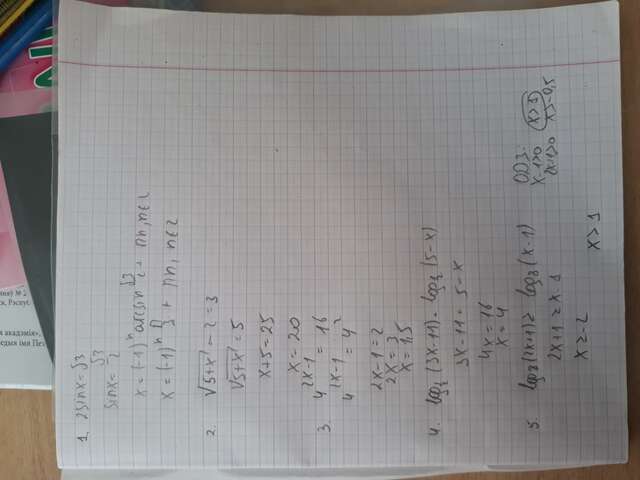 1. 2sinx=√3
sinx=√3/2
x=(-1)ⁿarcsin √3/2 + πn, n∈Z
x=(-1)ⁿ π/3 + πn, n∈Z
2. √5+x - 2=3
√5+x=5
x+5=25
x=20
3. 4^2x-1=16
4^2x-1=4²
2x-1=2
2x=3
x=1,5
4. log₂(3x-11)=log₂(5-x)
3x-11=5-x
4x=16
x=4
5. log₃(2x+1)≥log₃(x-1)
2x+1≥x-1
x≥-2
ОДЗ:
x-1>0
x>1
2x+1>0
x>-0,5
x>1
№ 2
акадэмія»,